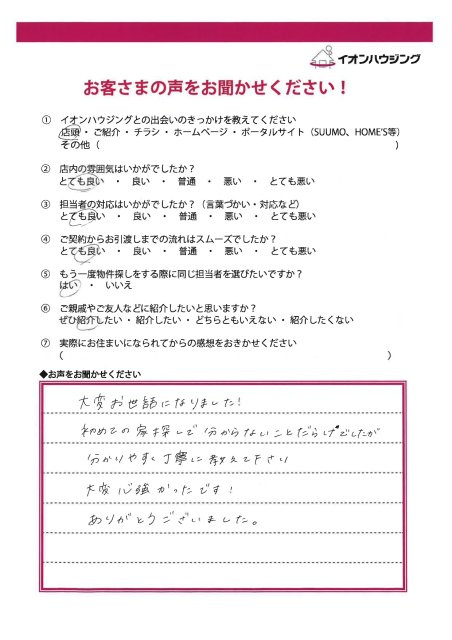 イオンハウジング
お客さまの声をお聞かせください！
① イオンハウジングとの出会いのきっかけを教えてください
店頭 ・ ご紹介 ・ チラシ ・ ホームページ ・ ポータルサイト（SUUMO、HOME'S等）
その他（　　　）
② 店内の雰囲気はいかがでしたか？
とても良い ・ 良い ・ 普通 ・ 悪い ・ とても悪い
③ 担当者の対応はいかがでしたか？（言葉づかい・対応など）
とても良い ・ 良い ・ 普通 ・ 悪い ・ とても悪い
④ ご契約からお引渡しまでの流れはスムーズでしたか？
とても良い ・ 良い ・ 普通 ・ 悪い ・ とても悪い
⑤ もう一度物件探しをする際に同じ担当者を選びたいですか？
はい ・ いいえ
⑥ ご親戚やご友人などに紹介したいと思いますか？
ぜひ紹介したい ・ 紹介したい ・ どちらともいえない ・ 紹介したくない
⑦ 実際にお住まいになられてからの感想をおきかせください
（　　　）
◆お声をお聞かせください
大変お世話になりました！
初めての家探しで分からないことだらけでしたが
分かりやすく丁寧に教えて下さい
大変心強かったです！
ありがとうございました。